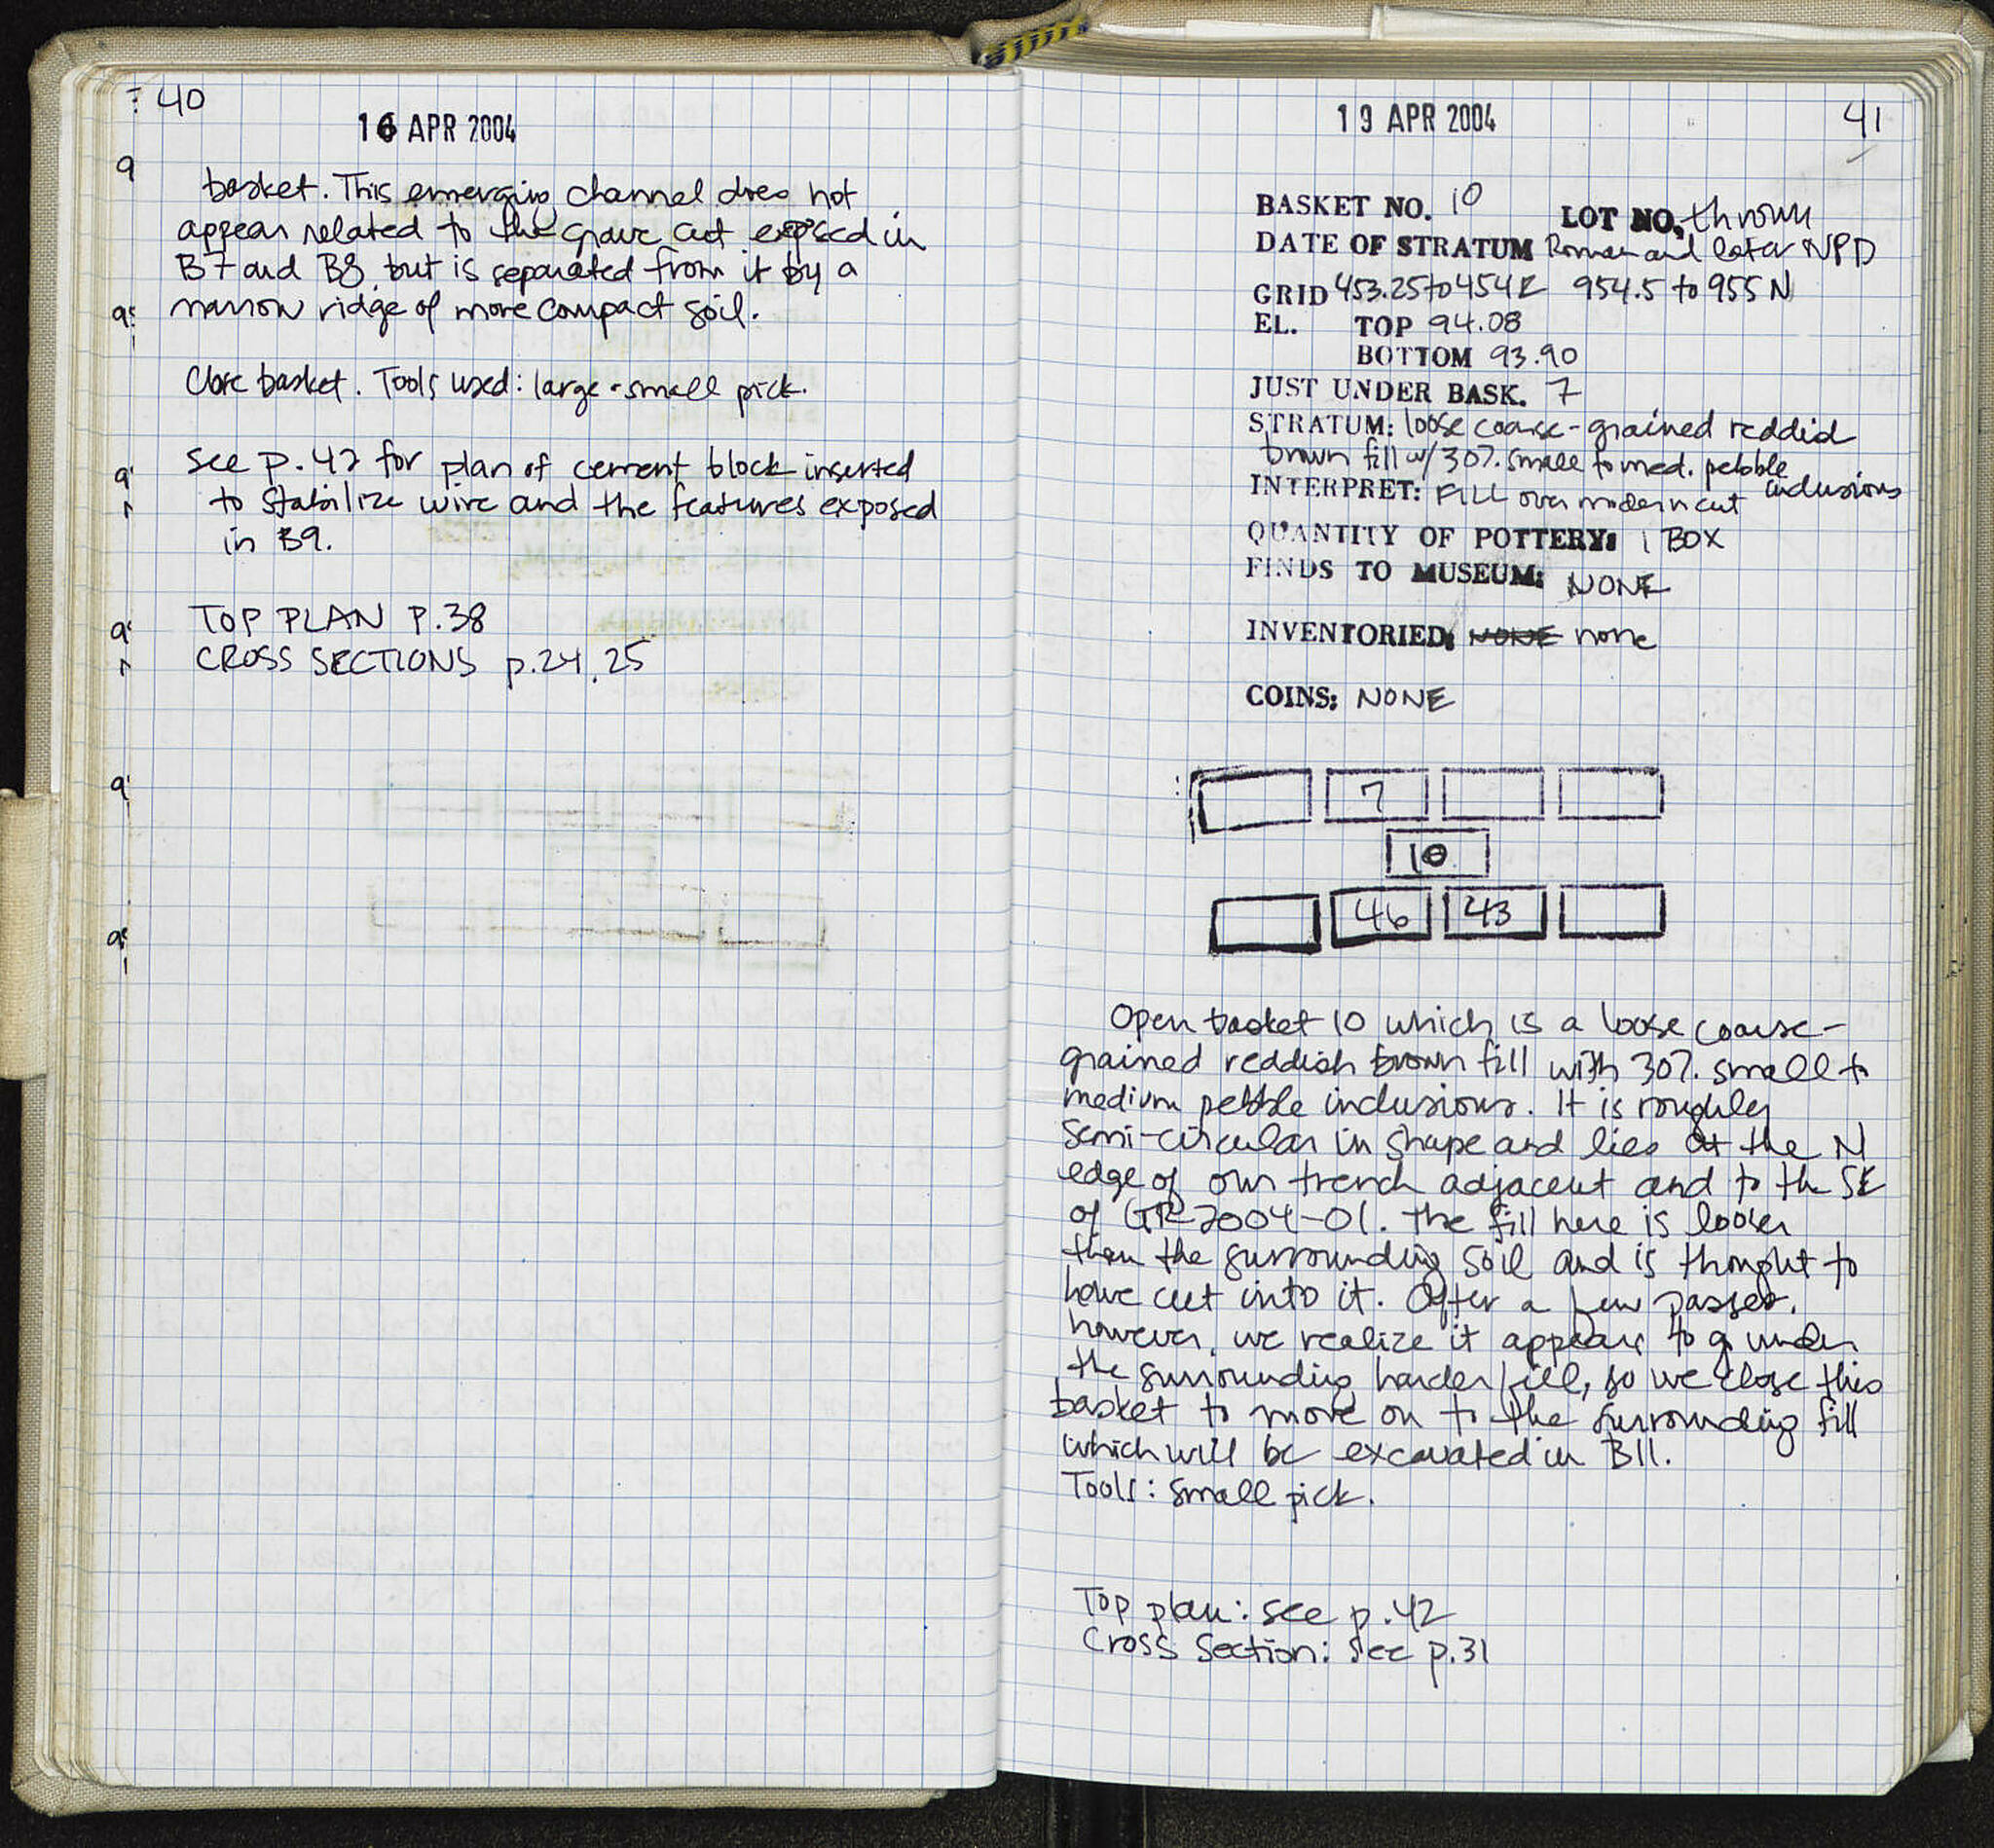 40
16 APR 2004
basket. This emerging channel does not
appear related to the grave cut exposed in
B7 and B8, but is separated from it by a
narrow ridge of more compact soil.
Close basket. Tools used: large + small pick.
See p. 42 for plan of cement block inserted
to stabilize wire and the features exposed
in B9.
TOP PLAN P.38
CROSS SECTIONS p.24, 25
19 APR 2004
41
BASKET NO. 10 LOT NO. thrown
DATE OF STRATUM Roman and later NPD
GRID 453.25 to 454E 954.5 to 955 N
EL. TOP 94.08
BOTTOM 93.90
JUST UNDER BASK. 7
STRATUM: loose coarse-grained reddish
brown fill w/ 30% small to med. pebble
inclusions
INTERPRET: FILL over modern cut
QUANTITY OF POTTERY: 1 BOX
FINDS TO MUSEUM: NONE
INVENTORIED: NONE none
COINS: NONE
7
10
46 43
Open basket 10 which is a loose coarse-
grained reddish brown fill with 30% small to
medium pebble inclusions. It is roughly
semi-circular in shape and lies at the N
edge of our trench adjacent and to the SE
of GR-2004-01. The fill here is looser
than the surrounding soil and is thought to
have cut into it. After a few passes,
however, we realize it appears to go under
the surrounding harder fill, so we close this
basket to move on to the surrounding fill
which will be excavated in B11.
Tools: small pick.
Top plan: see p.42
Cross Section: see p.31